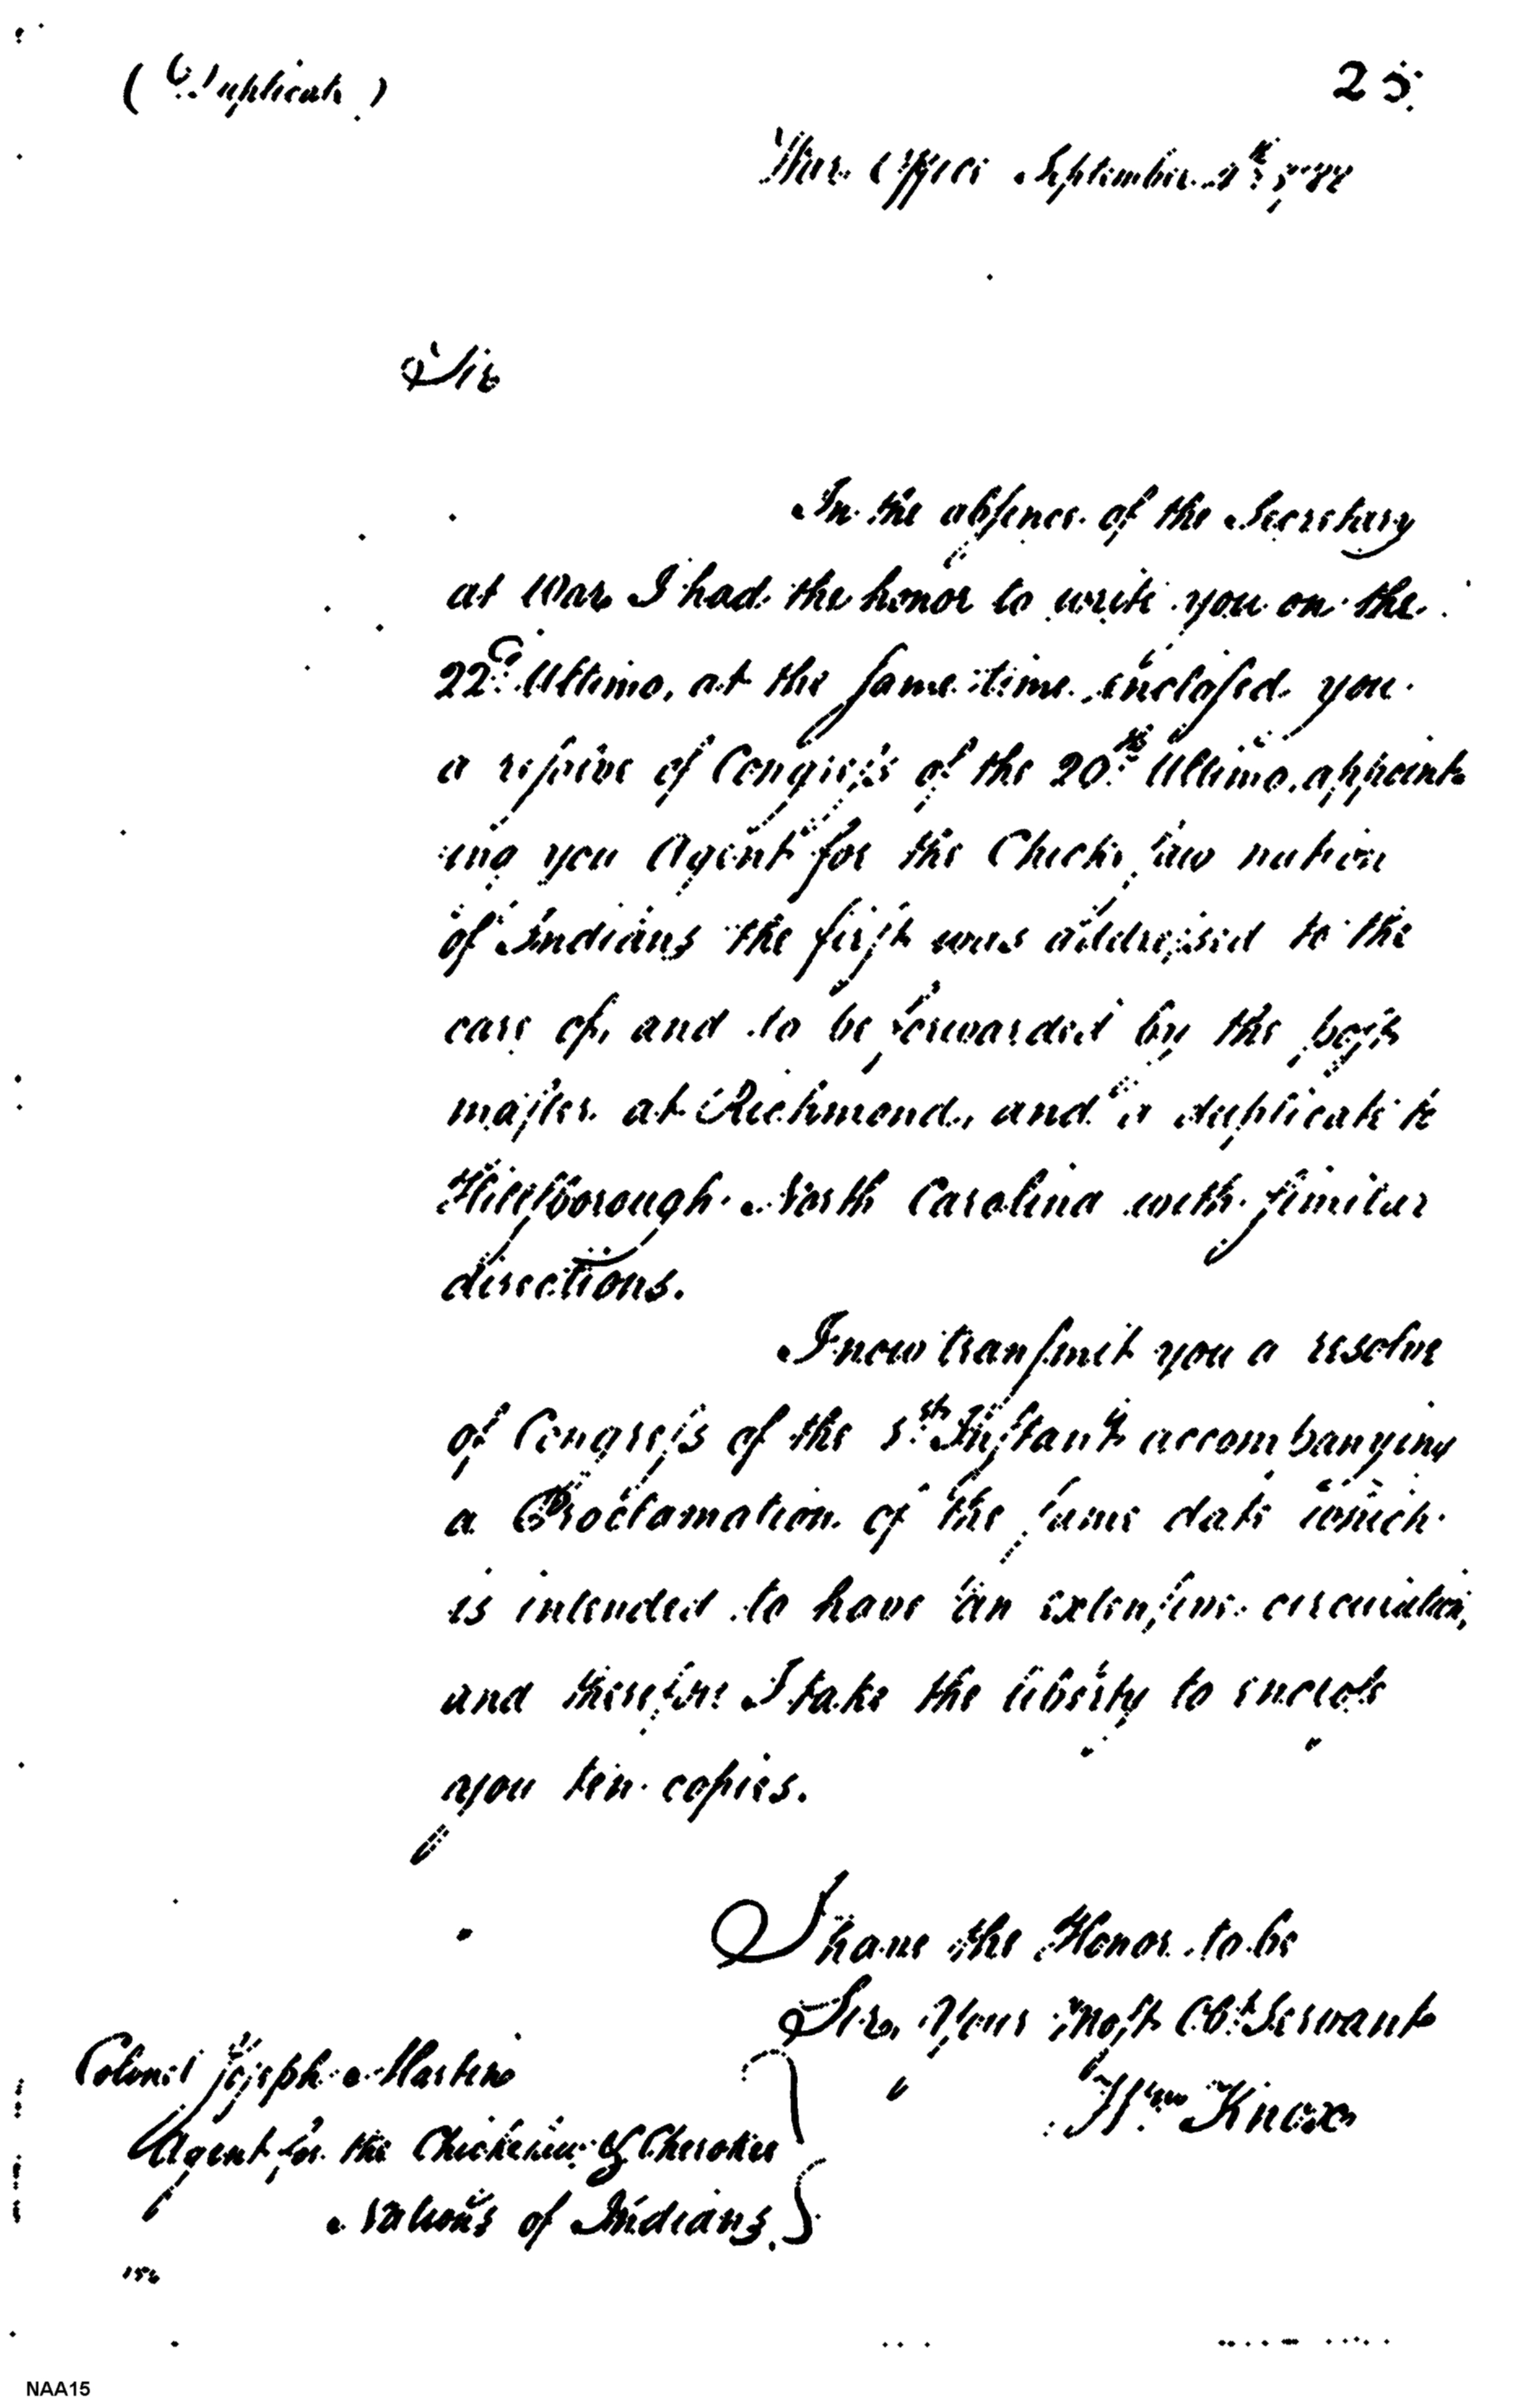 (Duplicate)
25
War Office September 2d 1788
Sir
In the absence of the Secretary
at War I had the honor to write you on the
22d Ultimo, at the same time enclosed you
a resolve of Congress of the 20th Ultimo, appoint
ing you Agent for the Chickesaw nation
of Indians the first was addressed to the
care of, and to be forwarded by the post
master at Richmond, and a duplicate to
Hillsborough North Carolina with similar
directions.
I now transmit you a resolve
of Congress of the 1st Instant accompanying
a Proclamation of the same date which
is intended to have an extensive circulation,
and therefore I take the liberty to enclose
you ten copies.
I have the Honor to be
Sir, Your most Obt Servant
Wm Knox
Colonel Joseph Martin
Agent for the Chickesaw & Cherokee
Nations of Indians.
NAA15